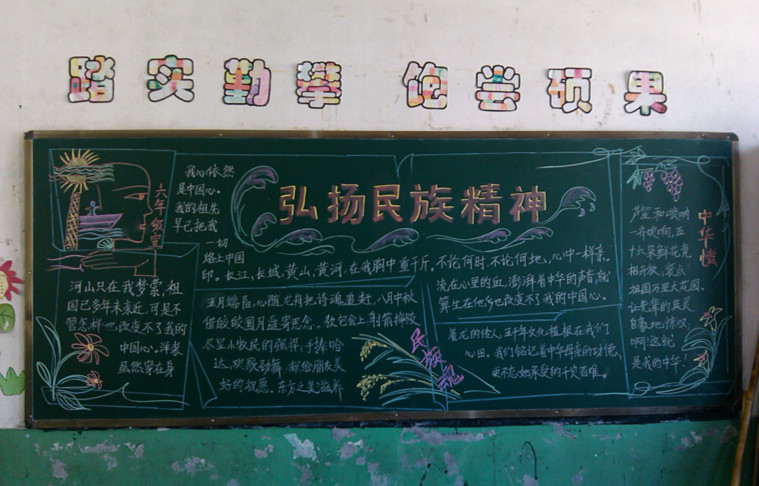 踏实勤攀 饱尝硕果
弘扬民族精神
六年级宣
我心依然
是中国心。
我的祖先
早已把我
一切
烙上中国
印。长江,长城,黄山,黄河,在我胸中重千斤。不论何时,不论何地,心中一样亲。
流在心里的血,澎湃着中华的声音,就
算生在他乡也改变不了我的中国心。
河山只在我梦萦,祖
国已多年未亲近,可是不
管怎样也改变不了我的
中国心。洋装
虽然穿在身
五月端后,心随龙舟把诗魂追赶,八月中秋
借皎皎圆月遥寄思念。敖包会上,射箭摔跤
尽显小牧民的强悍,手捧哈
达,欢歌劲舞,献给朋友美
好的祝愿。东方之美滋养
民族魂
着龙的传人,五千年文化植根在我们
心田。我们铭记着中华母亲的功德,
更不忘她承受的千灾百难。
中华情
芦笙和唢呐
一齐吹响,五
十六朵鲜花竞
相开放,装点
祖国万里大花园。
让先辈的英灵
自豪地
啊!这就
是我的中华!